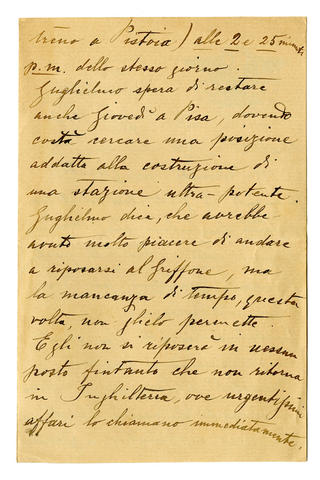 treno a Pistoia) alle 2 e 25 minuti
p. m. dello stesso giorno.
Guglielmo spera di restare
anche Giovedì a Pisa, dovendo
costà cercare una posizione
addatta alla costruzione di
una stazione ultra-potente.
Guglielmo dice, che avrebbe
avuto molto piacere di andare
a riposarsi al Griffone, ma
la mancanza di tempo, questa
volta, non glielo permette.
Egli non si riposerà in nessun
posto fintanto che non ritorna
in Inghilterra, ove urgentissimi
affari lo chiamano immediatamente.